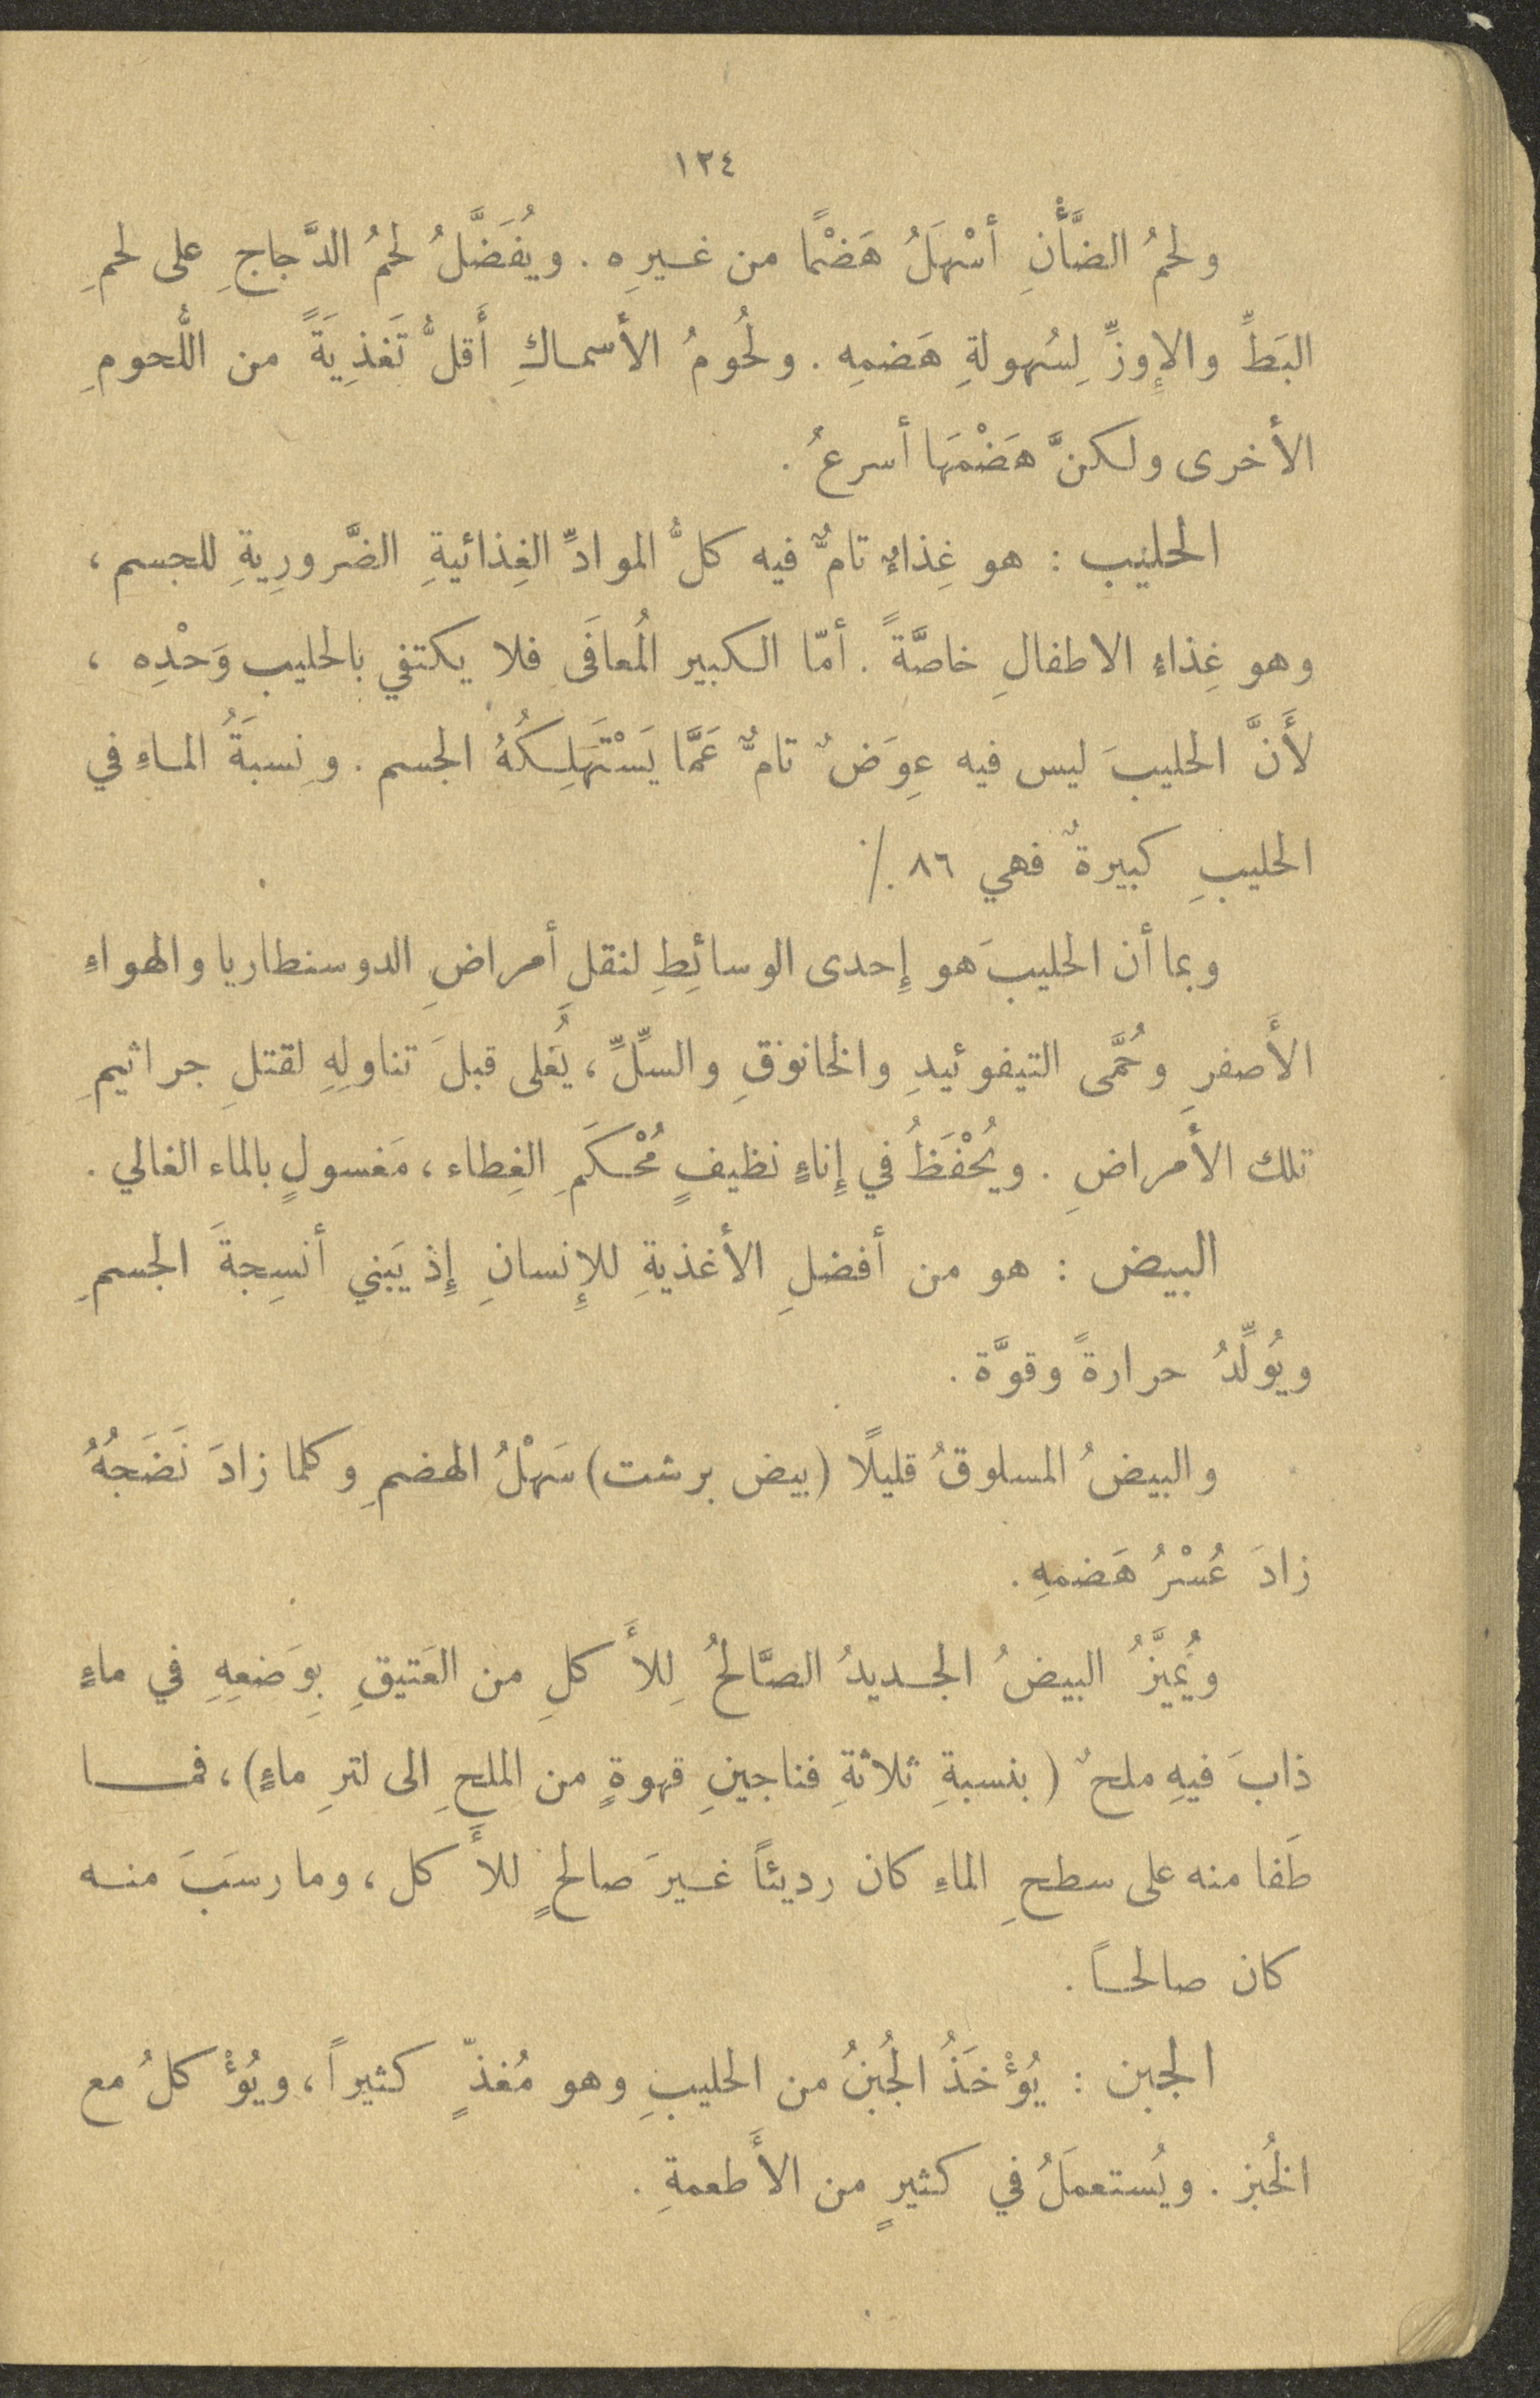 ١٢٤
ولحمُ الضَّأْنِ أسْهَلُ هَضْمًا من غيرِه . ويُفَضَّلُ لحمُ الدَّجاجِ على لحمِ
البَطِّ والإِوزِّ لِسُهولةِ هَضمِه . ولُحُومُ الأسماكِ أَقلُّ تَغذِيَةً من اللُّحومِ
الأخرى ولكنَّ هَضْمَهَا أسرعُ .
الحليب : هو غِذاءٌ تامٌّ فيه كلُّ الموادِّ الغِذائيةِ الضَّرورِيةِ للجسم ،
وهو غِذاءِ الاطفالِ خاصَّةً . أمّا الكبير المُعافَى فلا يكتفي بالحليب وَحْدِه ،
لأَنَّ الحليبَ ليس فيه عِوَضٌ تامٌّ عَمَّا يَسْتَهَلِكُهُ الجسم . ونِسبَةُ الماءِ في
الحليبِ كبيرةٌ فهي ٨٦ ٪
وبما أن الحليبَ هو إِحدى الوسائِطِ لنقلِ أمراضِ الدوسنطاريا والهواءِ
الأَصفرِ وحُمَّى التيفوئيدِ والخانوقِ والسِّلِّ ، يُغلى قبلَ تناولِهِ لقتلِ جراثيمِ
تلك الأَمراضِ . ويُحْفَظُ في إِناءٍ نظيفٍ مُحْكَمِ الغِطاء ، مَغسولٍ بالماء الغالي .
البيض : هو من أفضلِ الأغذيةِ للإِنسانِ إِذ يَبني أنسِجةَ الجسمِ
ويُولِّدُ حرارةً وقوَّة .
والبيضُ المسلوقُ قليلًا (بيض برشت) سَهْلُ الهضمِ وكلما زادَ نَضَجُهُ
زادَ عُسْرُ هَضمهِ .
ويُميَّزُ البيضُ الجديدُ الصَّالحُ لِلأَكلِ من العَتيقِ بِوَضعِهِ في ماءٍ
ذابَ فيهِ ملحٌ ( بنسبةِ ثلاثةِ فناجينِ قهوةٍ من الملحِ الى لترِ ماءٍ) ، فمـا
طَفا منه على سطحِ الماءِ كان رديئاً غيرَ صالحٍ للأَكل ، وما رسَبَ منه
كان صالحاً .
الجبن : يُؤْخَذُ الجُبنُ من الحليبِ وهو مُغذٍّ كثيراً ، ويُؤْكلُ مع
الخُبز . ويُستعمَلُ في كثيرٍ من الأَطعمةِ .